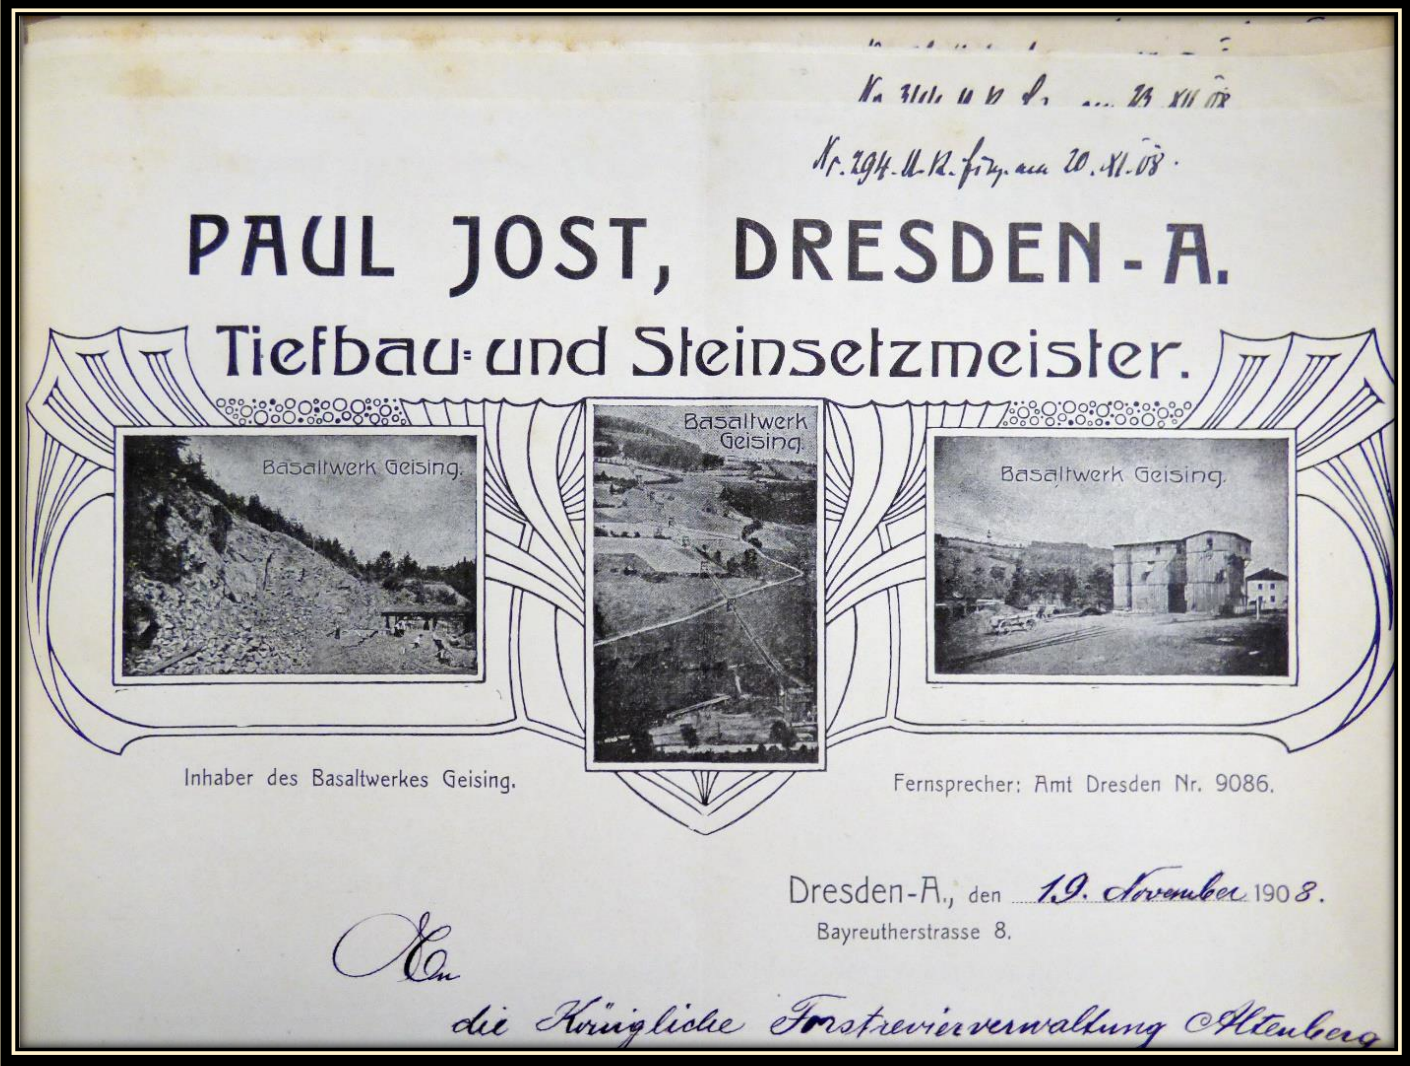 23 XII 08
Nr. 294. U. R. am 20. XI. 08.
PAUL JOST, DRESDEN-A.
Tiefbau- und Steinsetzmeister.
Basaltwerk Geising.
Basaltwerk
Geising.
Basaltwerk Geising.
Inhaber des Basaltwerkes Geising.
Fernsprecher: Amt Dresden Nr. 9086.
Dresden-A., den 19. November 1908.
Bayreutherstrasse 8.
An
die Königliche Forstrevierverwaltung Altenberg